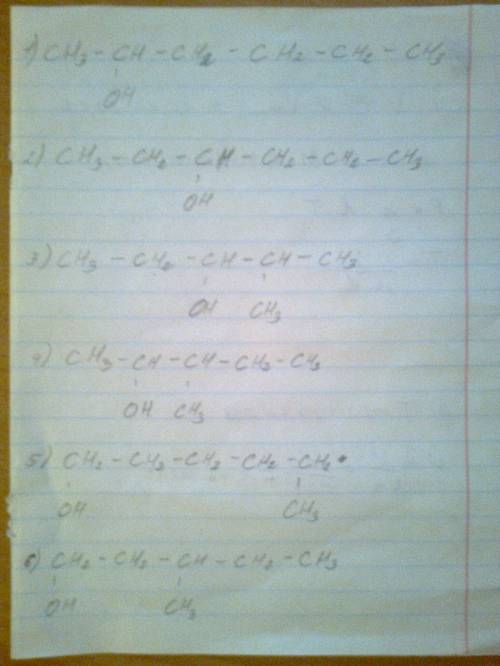 1) CH3 - CH - CH2 - CH2 - CH2 - CH3
OH
2) CH3 - CH2 - CH - CH2 - CH2 - CH3
OH
3) CH3 - CH2 - CH - CH - CH3
OH CH3
4) CH3 - CH - CH - CH2 - CH3
OH CH3
5) CH2 - CH2 - CH2 - CH2 - CH2
OH CH3
6) CH2 - CH2 - CH - CH2 - CH3
OH CH3